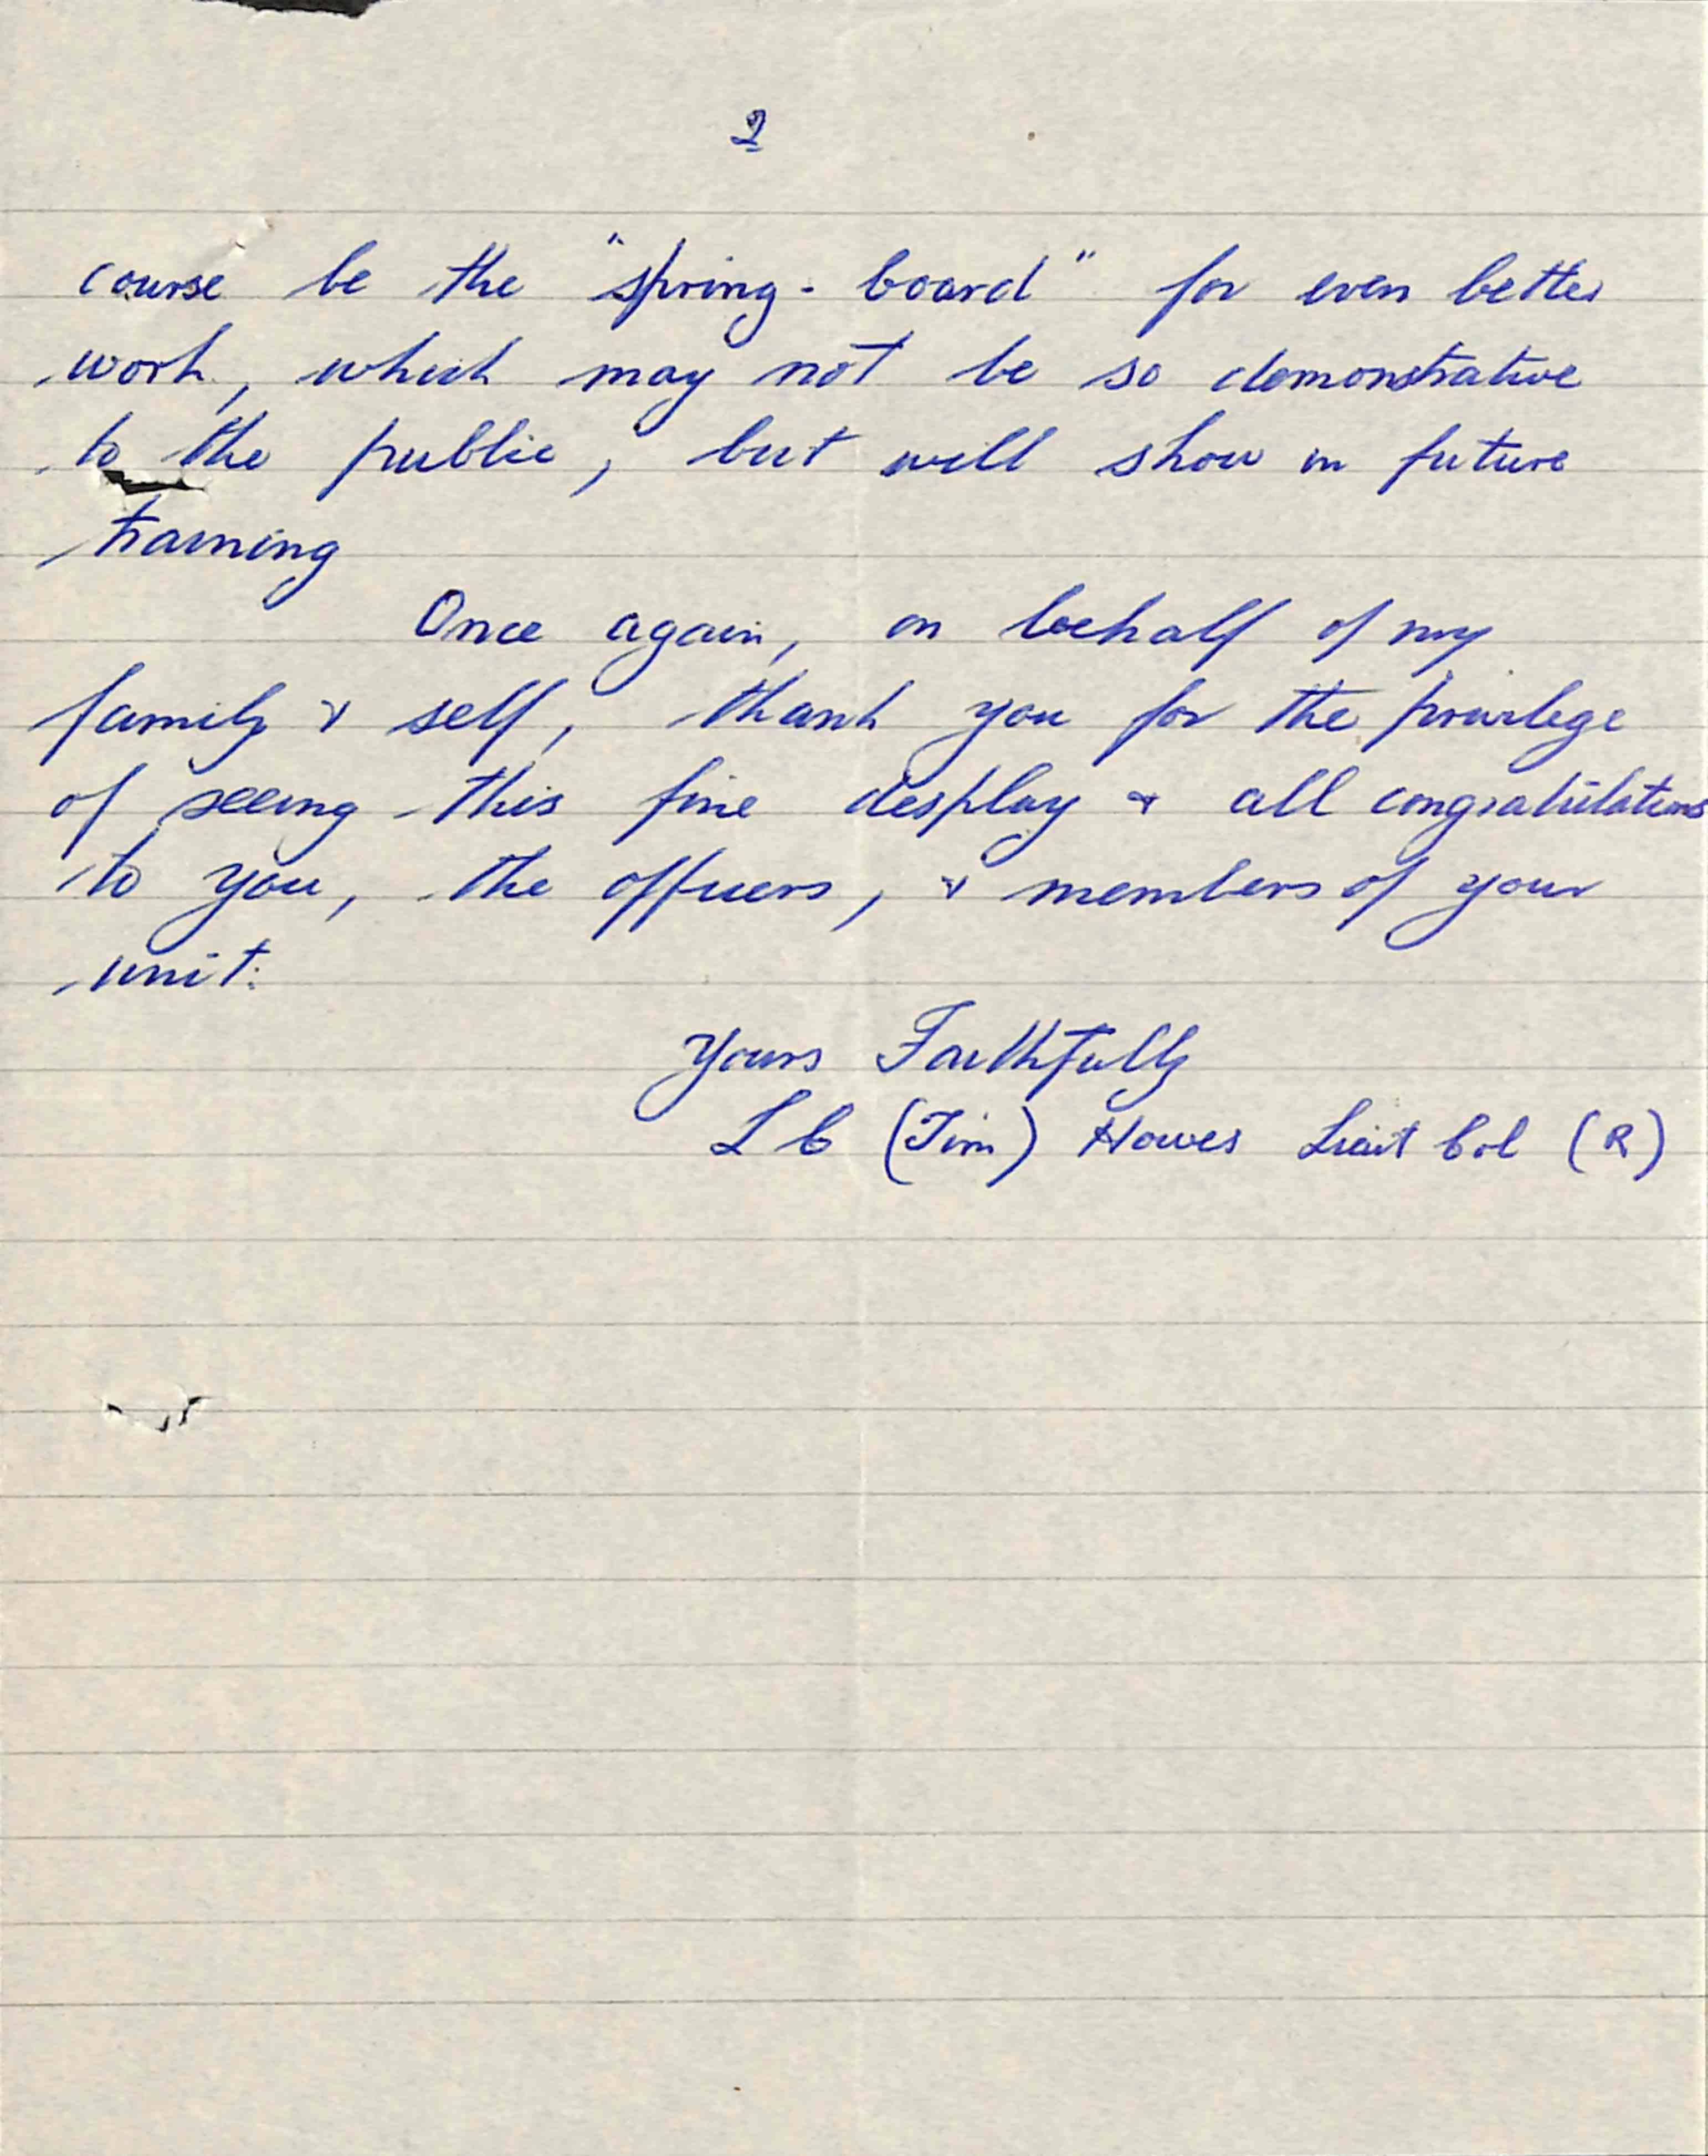 2
course be the "spring-board" for even better
work, which may not be so demonstrative
to the public, but will show in future
training
Once again, on behalf of my
family & self, thank you for the privilege
of seeing this fine display & all congratulations
to you, the officers, & members of your
unit.
Yours Faithfully
L C (Jim) Howes Lieut Col (R)